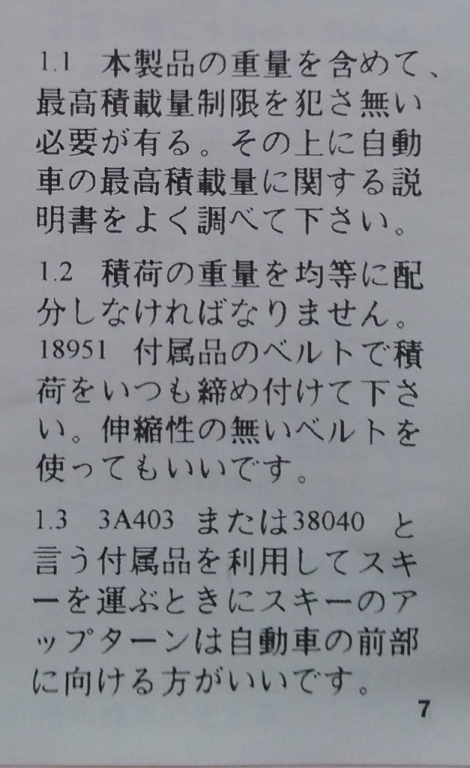 1.1 本製品の重量を含めて、
最高積載量制限を犯さ無い
必要が有る。その上に自動
車の最高積載量に関する説
明書をよく調べて下さい。
1.2 積荷の重量を均等に配
分しなければなりません。
18951 付属品のベルトで積
荷をいつも締め付けて下さ
い。伸縮性の無いベルトを
使ってもいいです。
1.3 3A403 または38040 と
言う付属品を利用してスキ
ーを運ぶときにスキーのア
ップターンは自動車の前部
に向ける方がいいです。
7